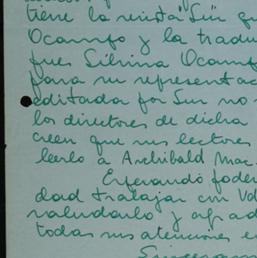 tiene la revista "Sur" qu
Ocampo y la tradu
fué Silvina Ocamp
para su representac
editada por Sur no
los directores de dicha
creen que sus lectores
leerlo a Archibald Mac
Esperando poder
dad trabajar con Vd
saludarlo y agrad
todas sus atenciones e